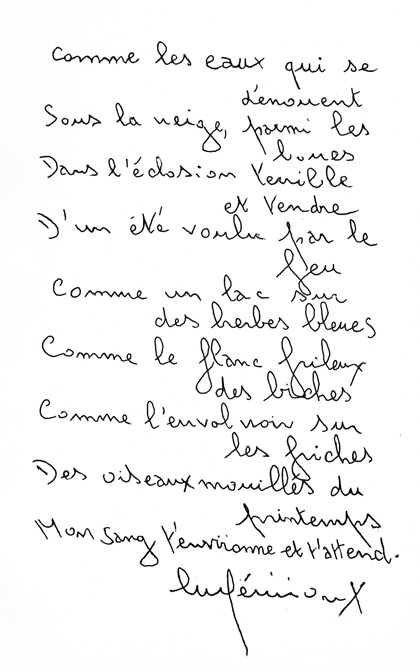 Comme les eaux qui se
dénouent
Sous la neige, parmi les
boues
Dans l'éclosion terrible
et tendre
D'un été voulu par le
feu
Comme un lac sur
des herbes bleues
Comme le flanc frileux
des biches
Comme l'envol noir sur
les friches
Des oiseaux mouillés du
printemps
Mon sang t'environne et t'attend.